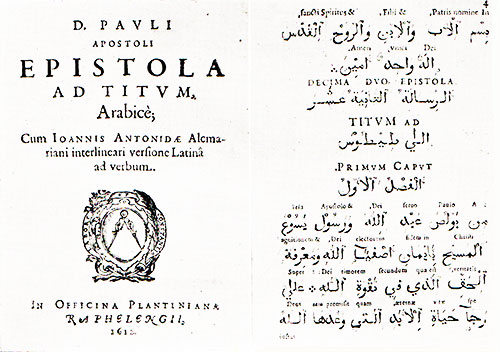 D. PAVLI
APOSTOLI
EPISTOLA
AD TITVM,
Arabicè;
Cum IOANNIS ANTONIDÆ Alcma-
riani interlineari versione Latinâ
ad verbum.
IN OFFICINA PLANTINIANA
RAPHELENGII,
1612.
4
sancti Spiritus & , Filii & , Patris nomine In
بسم الاب والابن والروح القدس
Amen. Dei
الله واحد امين
DECIMA DVO EPISTOLA
الرسالة الثانية عشر
TITVM AD
الي طيطوس
PRIMVM CAPVT
الفصل الاول
Apostolo & , Dei servo Paulo A
من بولص عبد الله ورسول يسوع
& , Dei electorum fidem in Christi
المسيح بايمان اصفيا الله ومعرفة
Super Dei timorem secundum quæ est veritatis
الحق الذي في تقوة الله علي
Deus quam æternæ vitæ spe
رجا حياة الابد التي وعدها الله